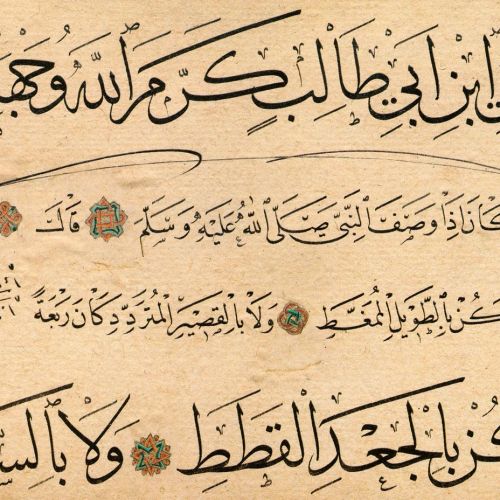 ابْنِ اَبِي طَالِبٍ كَرَّمَ اللّٰهُ وَجْهَهُ
كَانَ اِذَا وَصَفَ النَّبِيَّ صَلَّى اللّٰهُ عَلَيْهِ وَسَلَّمَ قَالَ
بِالطَّوِيلِ الْمُمَغَّطِ وَلَا بِالْقَصِيْرِ الْمُتَرَدِّدِ كَانَ رَبْعَةً
بِالْجَعْدِ الْقَطَطِ وَلَا